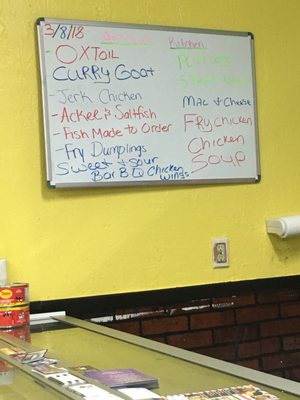 3/8/18
Kitchen
OXTOIL
CURRY Goat
- Jerk Chicken
MAC & Cheese
- Ackel & Saltfish
Fry Chicken
- Fish Made to Order
Chicken
SOUP
- Fry Dumplings
Sweet & Sour
Bar B Q Chicken
wings